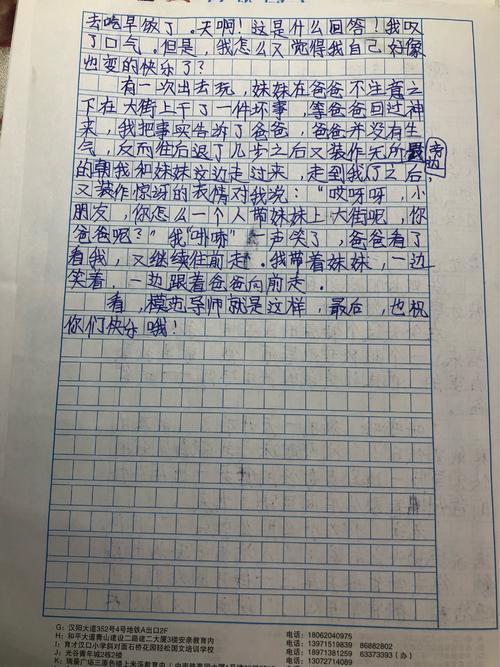 去吃早饭了。天啊！这是什么回答！我叹
了口气。但是，我怎么又觉得我自己好像
也变的快乐了？
有一次出去玩，妹妹在爸爸不注意之
下在大街上干了一件坏事，等爸爸回过神
来，我把事实告诉了爸爸，爸爸并没有生
气，反而往后退了几步之后又装作无所
旁边
的朝我和妹妹这边走过来，走到我们之后，
又装作惊讶的表情对我说：“哎呀呀，小
朋友，你怎么一个人带妹妹上大街呢，你
爸爸呢？”我“扑哧”一声笑了，爸爸看了
看我，又继续往前走。我带着妹妹，一边
笑着，一边跟着爸爸向前走。
看，模范导师就是这样，最后，也祝
你们快乐哦！
G：汉阳大道352号4号地铁A出口2F
H：和平大道青山建设二路建二大厦3楼安亲教育内
I：育才汉口小学斜对面石桥花园轻松国文培训学校
J：光谷青年城2栋2楼
电话：18062040975
电话：13971519839 86882802
电话：18971381259 63373393（办）
电话：13072714089